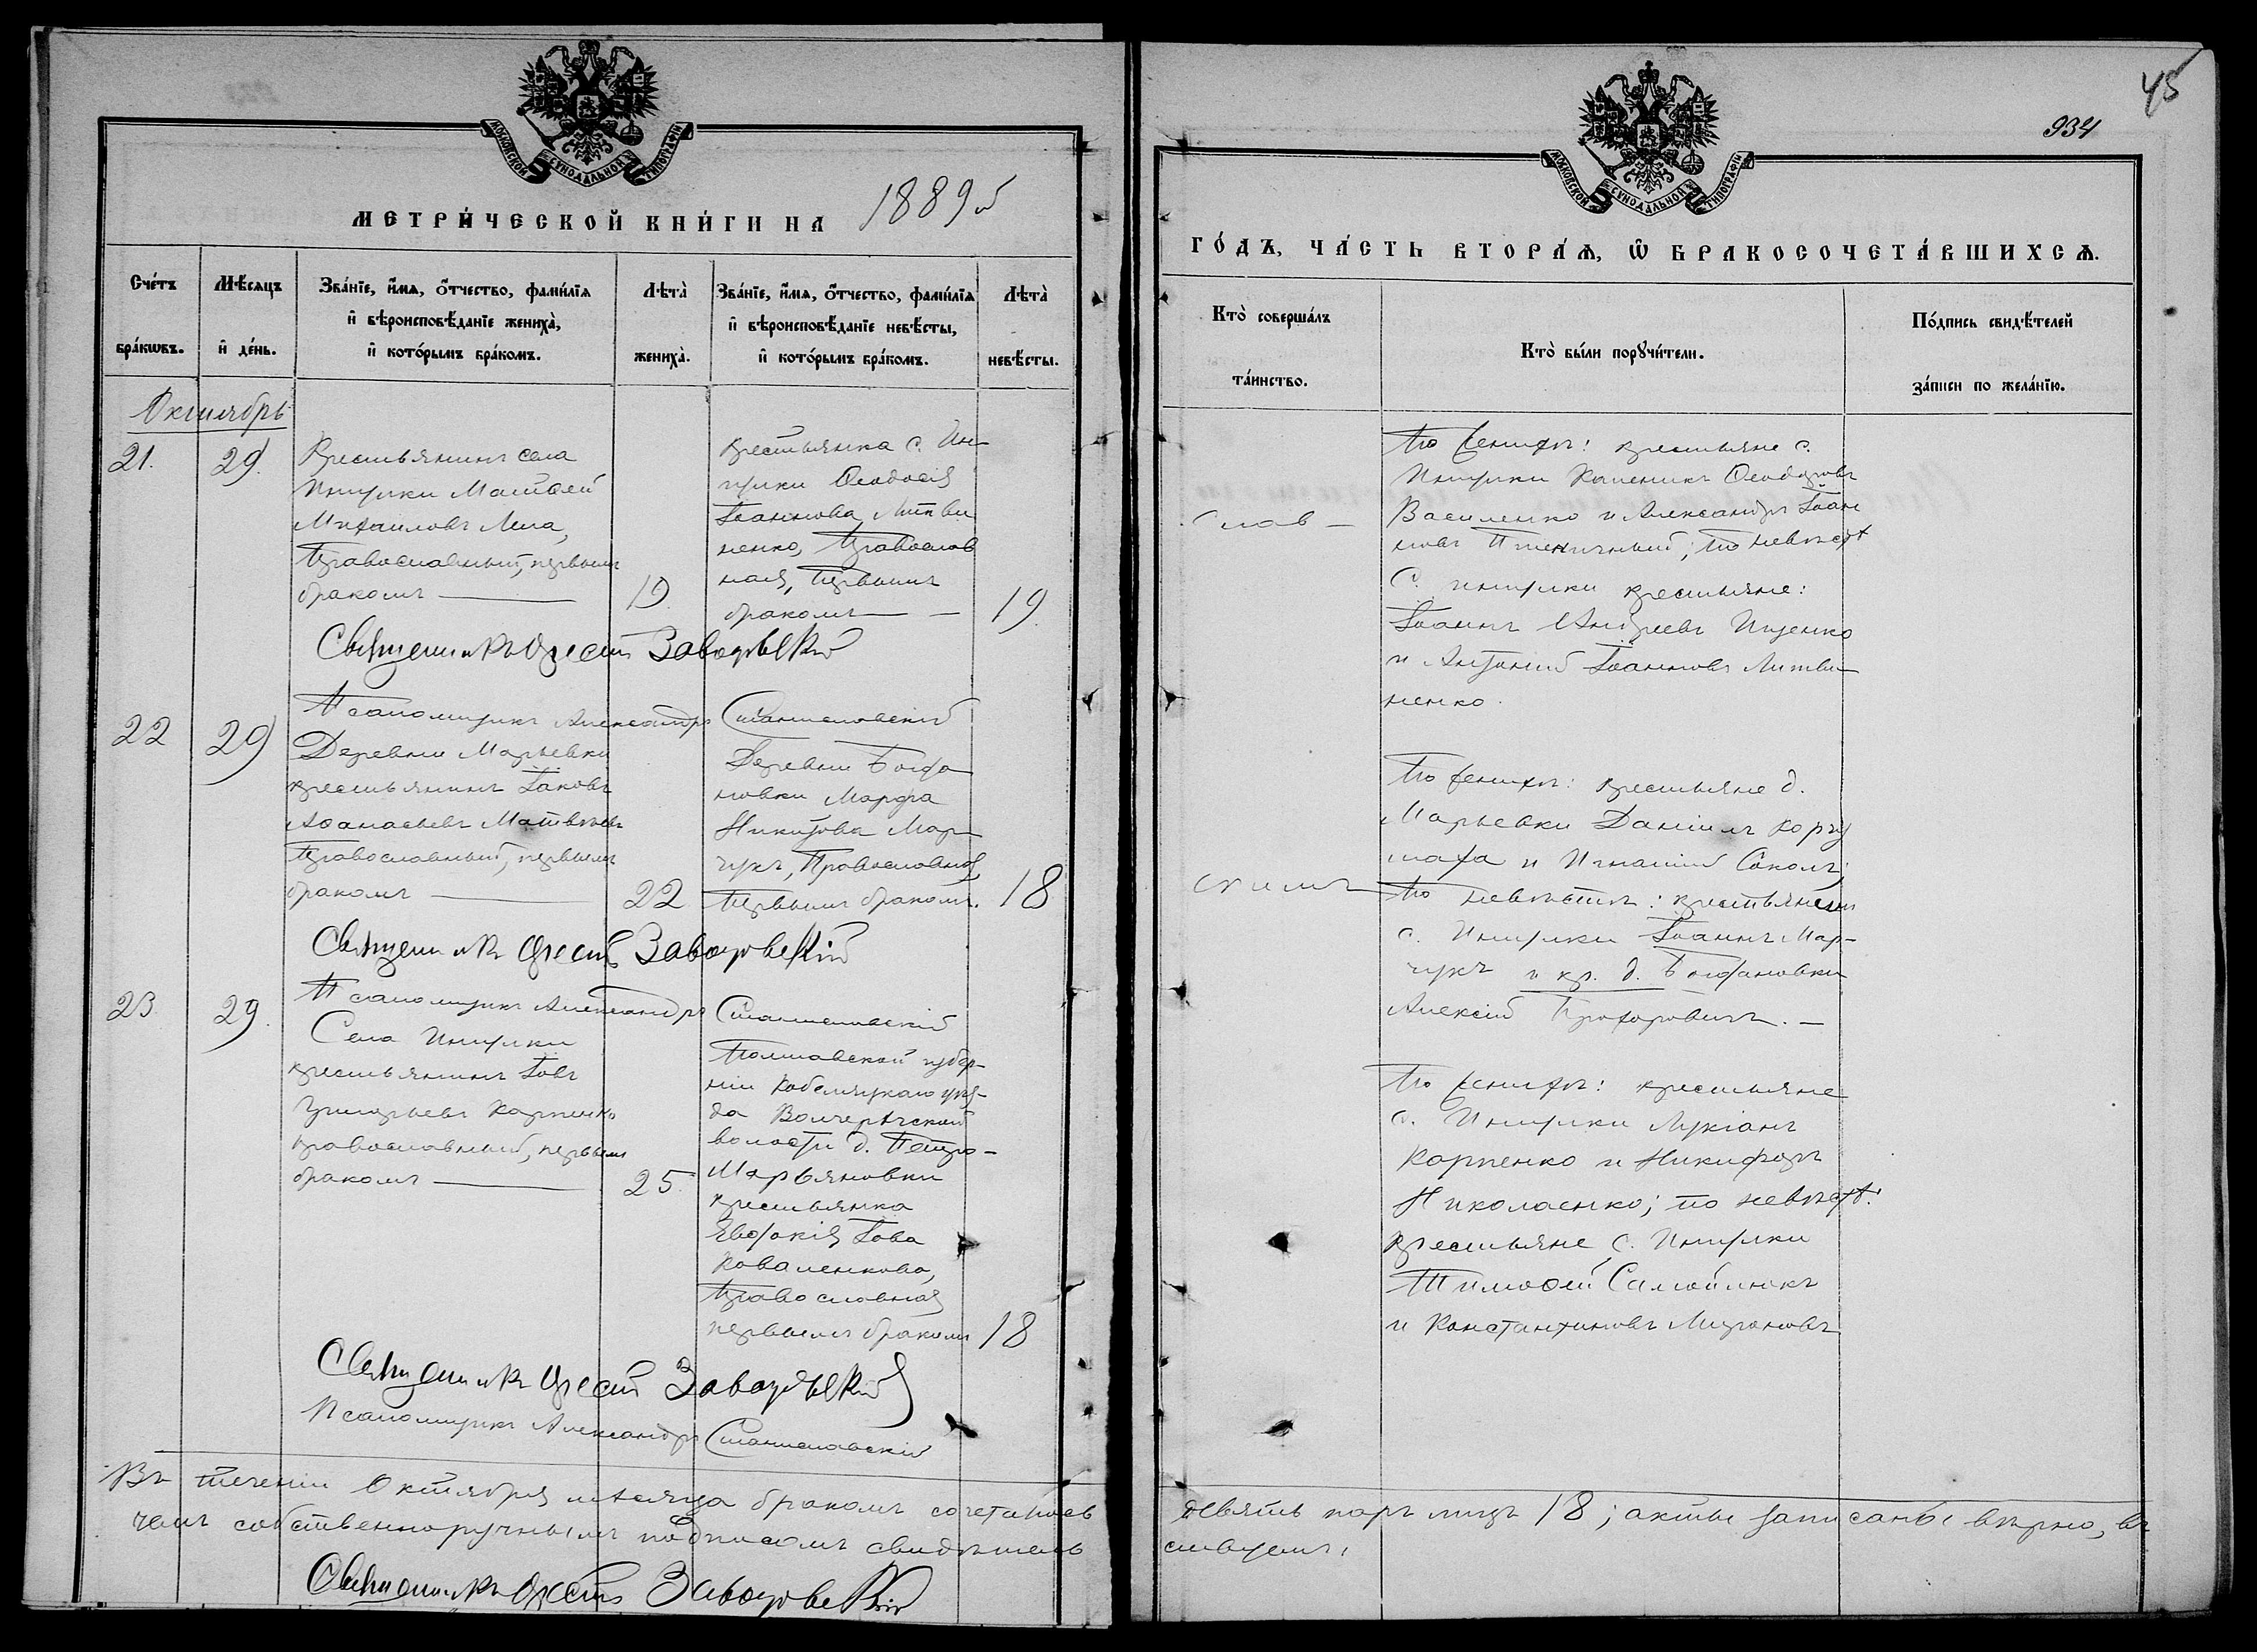 МОСКОВСКОЙ СУНОДАЛЬНОЙ ТИПОГРАФІИ
МЕТРИ́ЧЕСКОЙ КНИ́ГИ НА 1889й
Сче́тъ бра́кѡвъ.
Мѣ́сяцъ и҆ де́нь.
Зва́нїе, и҆́мѧ, ѻ҆́тчество, фами́лїѧ
и҆ вѣроисповѣ́данїе жениха̀,
и҆ кото́рымъ бра́комъ.
Лѣ́та̀ жениха̀.
Зва́нїе, и҆́мѧ, ѻ҆́тчество, фами́лїѧ
и҆ вѣроисповѣ́данїе невѣ́сты,
и҆ кото́рымъ бра́комъ.
Лѣ́та̀ невѣ́сты.
Октябрь
21.
29.
Крестьянинъ села
Ингулки Матвей
Михаиловъ Лега,
Православный, первымъ
бракомъ
19
Крестьянка с. Ин-
гулки Ѳеодосія
Іоаннова Литви
ненко, Православ
ная, Первымъ
бракомъ
19.
Священникъ Орестъ Заводовскій
Псаломщикъ Александръ Станиславскій
22
29
Деревни Марьевки
крестьянинъ Іаковъ
Аѳанасьевъ Матвѣевъ
Православный, первымъ
бракомъ
22
Деревни Богда
новки Марѳа
Никитова Мар-
чукъ, Православная
Первымъ бракомъ.
18
Священникъ Орестъ Заводовскій
Псаломщикъ Александръ Станиславскій
23.
29.
Села Ингулки
крестьянинъ Іовъ
Григорьевъ Карпенко
православный, первымъ
бракомъ
25.
Полтавской губер-
ніи Кобеляцкаго уѣз-
да Волчерѣчской
волости д. Петро-
Марьяновки
крестьянка
Евдокія Іова
Коваленкова,
Православная
первымъ бракомъ
18
Священникъ Орестъ Заводовскій
Псаломщикъ Александръ Станиславскій
Въ теченіи Октября мѣсяца бракомъ сочеталось
чемъ собственноручнымъ подписомъ свидѣтель
Священникъ Орестъ Заводовскій
45
934
МОСКОВСКОЙ СУНОДАЛЬНОЙ ТИПОГРАФІИ
ГО́ДЪ, ЧА́СТЬ ВТОРА́Ѧ, Ѽ БРАКОСОЧЕТА́ВШИХСѦ.
Кто̀ соверша́лъ та́инство.
Кто̀ бы́ли порꙋчи́тели.
По́дпись свидѣ́телей за́писи по жела́нїю.
По женихѣ: крестьяне с.
Ингулки Каленикъ Ѳеодоровъ
Василенко и Александръ Іоан
новъ Пшеничный; по невѣстѣ
с. Ингулки крестьяне:
Іоаннъ Андреевъ Ищенко
и Антоній Іоанновъ Литви-
ненко.
По женихѣ: крестьяне д.
Марьевки Даніилъ Коржу
и Игнатій Соколъ;
По невѣстѣ: крестьянинъ
с. Ингулки Іоаннъ Мар-
чукъ и кр. д. Богдановки
Алексій Прохоровичъ. —
По женихѣ: крестьяне
с. Ингулки Лукіанъ
Карпенко и Никифоръ
Николаенко; по невѣстѣ:
крестьяне с. Ингулки
Тимоѳей Самойликъ
и Константиновъ Мироновъ
девять паръ лицъ 18; акты записаны вѣрно, въ
ствуемъ,